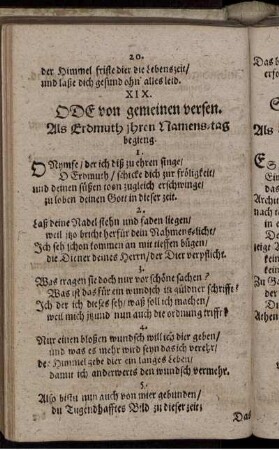 20.
der Himmel friste dier die Lebenszeit/
und laße dich gesund ohn' alles leid.
XIX.
ODE von gemeinen versen.
Als Erdmuth jhren Namens-tag
begieng.
1.
O Nymfe/ der ich diß zu ehren singe/
O Erdmuth/ schicke dich zur fröligkeit/
und deinen süßen toon zugleich erschwinge/
zu loben deinen Gott in dieser zeit.
2.
Laß deine Nadel stehn und faden liegen/
weil itzo bricht herfür dein Nahmens-licht/
Ich seh schon kommen an mit tieffen bügen/
die Diener deines Herrn/ der Dier verpflicht.
3.
Was tragen sie doch nur vor schöne sachen?
Was ist das für ein wundsch in güldner schrifft?
Ich der ich dießes seh/ waß soll ich machen/
weil mich itzund nun auch die ordnung trifft?
4.
Nur einen bloßen wundsch will ich dier geben/
und was es mehr wird seyn das ich verehr/
der Himmel gebe dier ein langes leben/
damit ich anderwerts den wundsch vermehr.
5.
Also bistu nun auch von mier gebunden/
du Tugendhafftes Bild zu dieser zeit;
Das